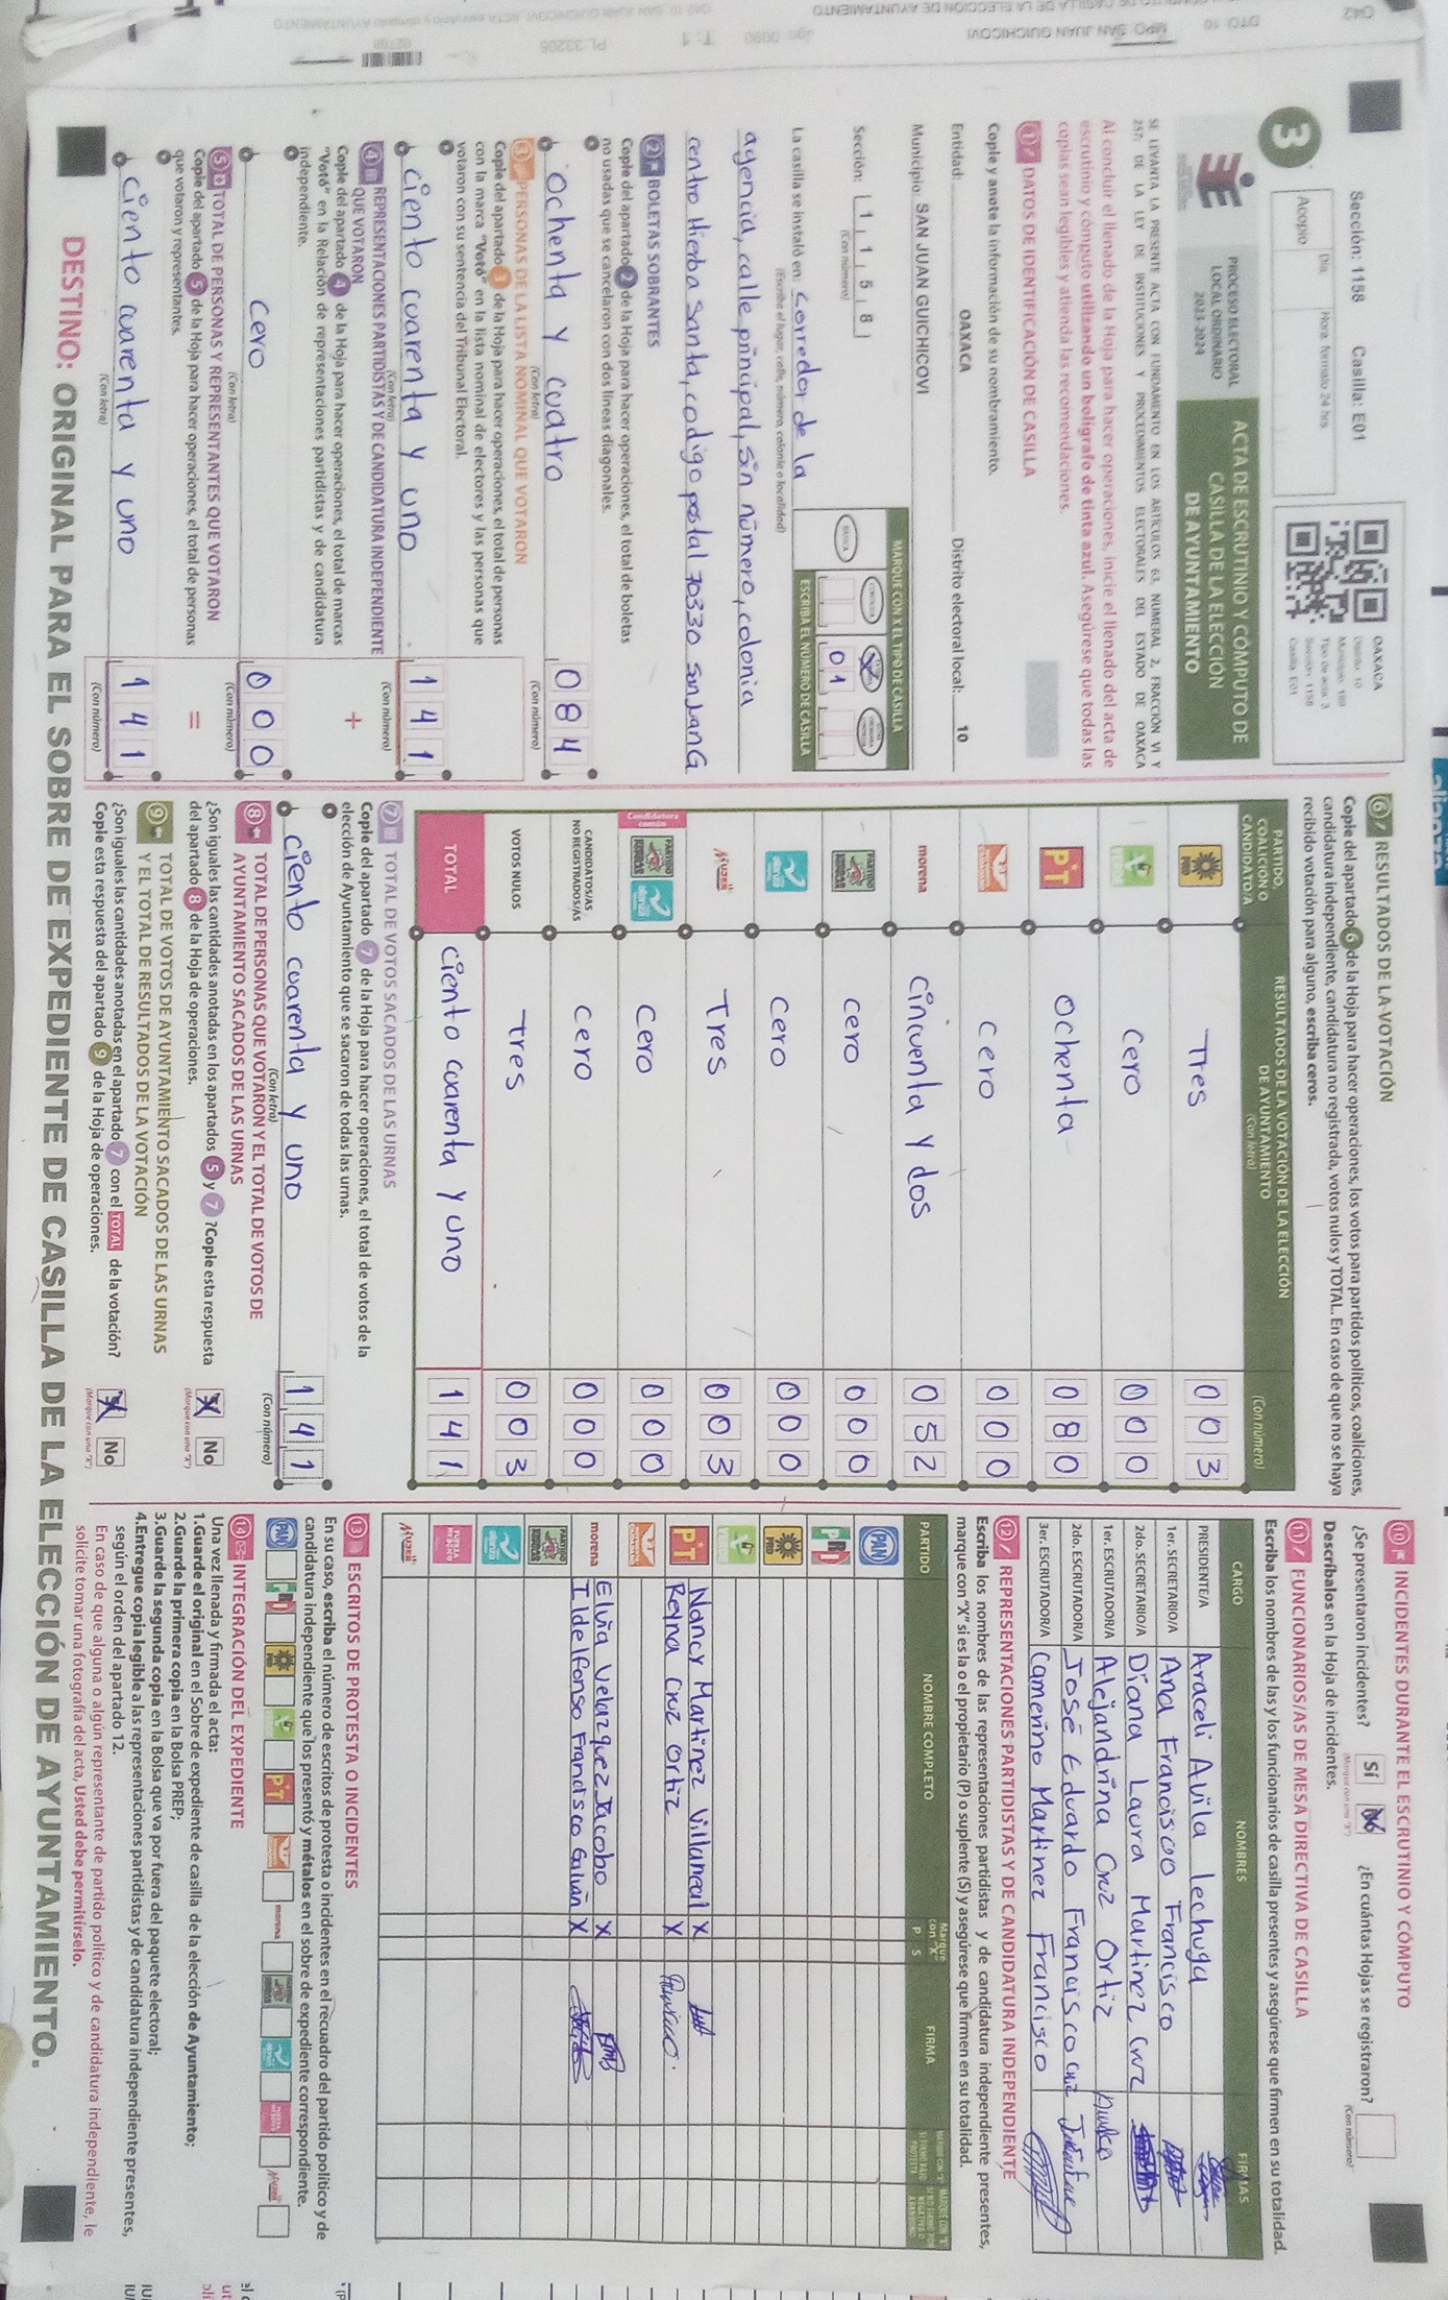 Sección: 1158 Casilla: E01
Día: Hora: formato 24 hrs
Acopio
3
OAXACA
Distrito: 10
Municipio: 198
Tipo de acta: 3
Sección: 1158
Casilla: E01
PROCESO ELECTORAL
LOCAL ORDINARIO
2023-2024
ACTA DE ESCRUTINIO Y CÓMPUTO DE
CASILLA DE LA ELECCIÓN
DE AYUNTAMIENTO
SE LEVANTA LA PRESENTE ACTA CON FUNDAMENTO EN LOS ARTÍCULOS 63, NUMERAL 2, FRACCIÓN VI Y
257; DE LA LEY DE INSTITUCIONES Y PROCEDIMIENTOS ELECTORALES DEL ESTADO DE OAXACA
Al concluir el llenado de la Hoja para hacer operaciones, inicie el llenado del acta de
escrutinio y cómputo utilizando un bolígrafo de tinta azul. Asegúrese que todas las
copias sean legibles y atienda las recomendaciones.
1 DATOS DE IDENTIFICACIÓN DE CASILLA
Copie y anote la información de su nombramiento.
Entidad: OAXACA Distrito electoral local: 10
Municipio: SAN JUAN GUICHICOVI
MARQUE CON X EL TIPO DE CASILLA
Sección: 1 1 5 8
(Con número)
BÁSICA
0 1
ESCRIBA EL NÚMERO DE CASILLA
La casilla se instaló en: Corredor de la
(Escriba el lugar, calle, número, colonia o localidad)
agencia, calle principal, sin número, colonia
centro Hierba Santa, codigo postal 70330 San Juan G
2 BOLETAS SOBRANTES
Copie del apartado 2 de la Hoja para hacer operaciones, el total de boletas
no usadas que se cancelaron con dos líneas diagonales.
Ochenta y cuatro 0 8 4
(Con letra) (Con número)
3 PERSONAS DE LA LISTA NOMINAL QUE VOTARON
Copie del apartado 3 de la Hoja para hacer operaciones, el total de personas
con la marca "Votó" en la lista nominal de electores y las personas que
votaron con su sentencia del Tribunal Electoral.
Ciento cuarenta y uno 1 4 1
(Con letra) (Con número)
4 REPRESENTACIONES PARTIDISTAS Y DE CANDIDATURA INDEPENDIENTE
QUE VOTARON
Copie del apartado 4 de la Hoja para hacer operaciones, el total de marcas
"Votó" en la Relación de representaciones partidistas y de candidatura
independiente.
+
Cero 0 0 0
(Con letra) (Con número)
5 TOTAL DE PERSONAS Y REPRESENTANTES QUE VOTARON
Copie del apartado 5 de la Hoja para hacer operaciones, el total de personas
que votaron y representantes.
=
Ciento cuarenta y uno 1 4 1
(Con letra) (Con número)
6 RESULTADOS DE LA VOTACIÓN
Copie del apartado 6 de la Hoja para hacer operaciones, los votos para partidos políticos, coaliciones,
candidatura independiente, candidatura no registrada, votos nulos y TOTAL. En caso de que no se haya
recibido votación para alguno, escriba ceros.
PARTIDO,
COALICIÓN O
CANDIDATO/A
RESULTADOS DE LA VOTACIÓN DE LA ELECCIÓN
DE AYUNTAMIENTO
(Con letra) (Con número)
PRD Tres 0 0 3
VERDE Cero 0 0 0
PT Ochenta 0 8 0
Cero 0 0 0
morena Cincuenta y dos 0 5 2
Cero 0 0 0
Cero 0 0 0
MUJER Tres 0 0 3
Candidatura común
Cero 0 0 0
CANDIDATOS/AS
NO REGISTRADOS/AS Cero 0 0 0
VOTOS NULOS Tres 0 0 3
TOTAL Ciento cuarenta y uno 1 4 1
7 TOTAL DE VOTOS SACADOS DE LAS URNAS
Copie del apartado 7 de la Hoja para hacer operaciones, el total de votos de la
elección de Ayuntamiento que se sacaron de todas las urnas.
Ciento cuarenta y uno 1 4 1
(Con letra) (Con número)
8 TOTAL DE PERSONAS QUE VOTARON Y EL TOTAL DE VOTOS DE
AYUNTAMIENTO SACADOS DE LAS URNAS
¿Son iguales las cantidades anotadas en los apartados 5 y 7 ?Copie esta respuesta
del apartado 8 de la Hoja de operaciones.
X No
(Marque con una "X")
9 TOTAL DE VOTOS DE AYUNTAMIENTO SACADOS DE LAS URNAS
Y EL TOTAL DE RESULTADOS DE LA VOTACIÓN
¿Son iguales las cantidades anotadas en el apartado 7 con el TOTAL de la votación?
Copie esta respuesta del apartado 9 de la Hoja de operaciones.
X No
(Marque con una "X")
10 INCIDENTES DURANTE EL ESCRUTINIO Y CÓMPUTO
¿Se presentaron incidentes? Sí No ¿En cuántas Hojas se registraron?
(Marque con una "X") (Con número)
Descríbalos en la Hoja de incidentes.
11 FUNCIONARIOS/AS DE MESA DIRECTIVA DE CASILLA
Escriba los nombres de las y los funcionarios de casilla presentes y asegúrese que firmen en su totalidad.
CARGO NOMBRES FIRMAS
PRESIDENTE/A Araceli Avila lechuga
1er. SECRETARIO/A Ana Francisco Francisco
2do. SECRETARIO/A Diana Laura Martinez Cruz
1er. ESCRUTADOR/A Alejandrina Cruz Ortiz
2do. ESCRUTADOR/A José Eduardo Francisco Cruz
3er. ESCRUTADOR/A Camerino Martinez Francisco
12 REPRESENTACIONES PARTIDISTAS Y DE CANDIDATURA INDEPENDIENTE
Escriba los nombres de las representaciones partidistas y de candidatura independiente presentes,
marque con "X" si es la o el propietario (P) o suplente (S) y asegúrese que firmen en su totalidad.
PARTIDO NOMBRE COMPLETO Marque con "X" P S FIRMA
PAN
PRI
PRD
VERDE
PT Nancy Martinez Villarreal X
Reyna Cruz Ortiz X
morena Elvia Velazquez Jacobo X
Idelfonso Francisco Galván X
FUERZA MÉXICO
MUJER
13 ESCRITOS DE PROTESTA O INCIDENTES
En su caso, escriba el número de escritos de protesta o incidentes en el recuadro del partido político y de
candidatura independiente que los presentó y métalos en el sobre de expediente correspondiente.
PAN PRI PRD VERDE PT morena
14 INTEGRACIÓN DEL EXPEDIENTE
Una vez llenada y firmada el acta:
1.Guarde el original en el Sobre de expediente de casilla de la elección de Ayuntamiento;
2.Guarde la primera copia en la Bolsa PREP;
3.Guarde la segunda copia en la Bolsa que va por fuera del paquete electoral;
4.Entregue copia legible a las representaciones partidistas y de candidatura independiente presentes,
según el orden del apartado 12.
En caso de que alguna o algún representante de partido político y de candidatura independiente, le
solicite tomar una fotografía del acta, Usted debe permitírselo.
DESTINO: ORIGINAL PARA EL SOBRE DE EXPEDIENTE DE CASILLA DE LA ELECCIÓN DE AYUNTAMIENTO.